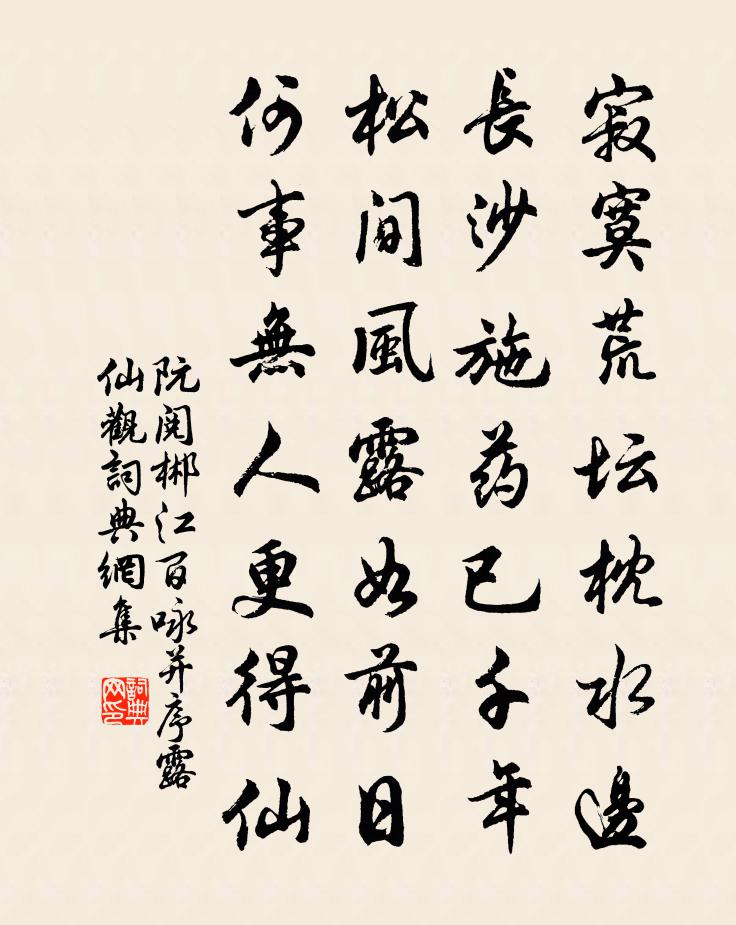 寂寞荒坛枕水邊
長沙施药已千年
松間風露如前日
何事無人更得仙
阮閱郴江百咏并序露
仙觀詞典網集
詞典
网印